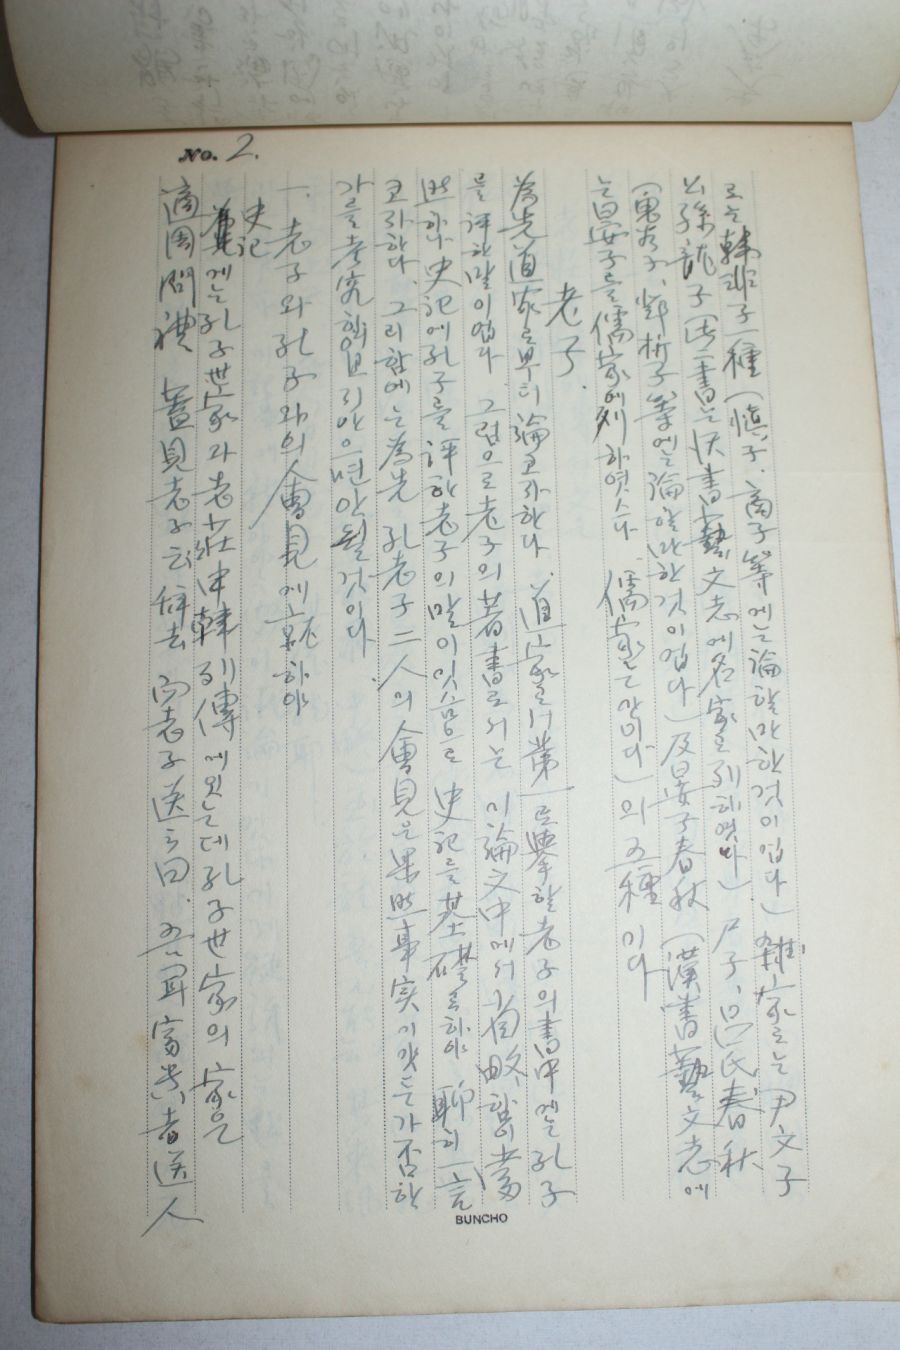 No. 2.
로는 韓非子一種 (愼子, 商子等에는 論할만한것이업다) 雜家로는 尹文子
公孫龍子 (此書는 漢書藝文志에 名家로 列하엿다) 尸子, 呂氏春秋
(鬼谷子, 鄧析子等에는 論할만한것이업다) 及晏子春秋 (漢書藝文志에
는 晏子를 儒家에 列하엿스나 儒家는 안이다) 의 五種이다
老子.
爲先 道家로부터 論코자한다. 道家로서 第一로 擧할 老子의 書中에는 孔子
를 評한말이업다. 그럼으로 老子의 著書로서는 이 論文中에서 省略함이 當
然하나 史記에 孔子를 評한 老子의 말이잇슴으로 史記를 基礎로하야 聊히 一言
코자한다. 그리함에는 爲先 孔老子 二人의 會見은 果然事实이갓든가 否한
가를 考究함으로
지안으면 안될것이다
一. 老子와 孔子와의 會見에 就하야
史記
蓋에는 孔子世家과 老莊申韓列傳에 잇는데 孔子世家의 家은
適周問禮 蓋見老子云 辭去 而老子送之曰. 吾聞富貴者送人
BUNCHO